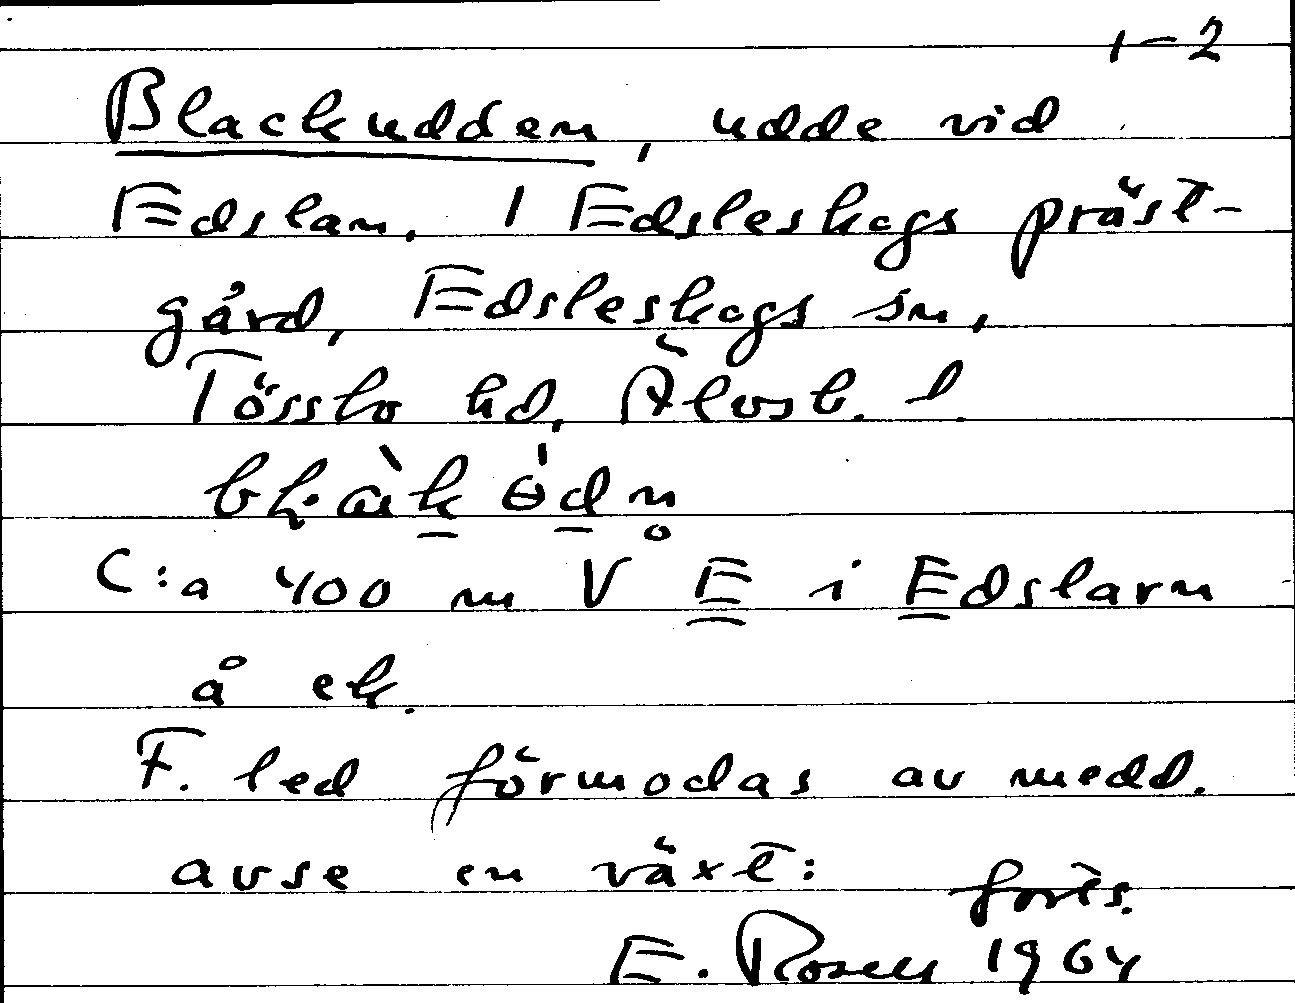 1-2
Blackudden, udde vid
Edslan. I Edsleskogs präst-
gård, Edsleskogs sn,
Tössbo hd, Älvsb. l.
C:a 400 m V E i Edslarn
å ek.
F. led förmodas av medd.
avse en växt: forts.
E. Rosell 1964